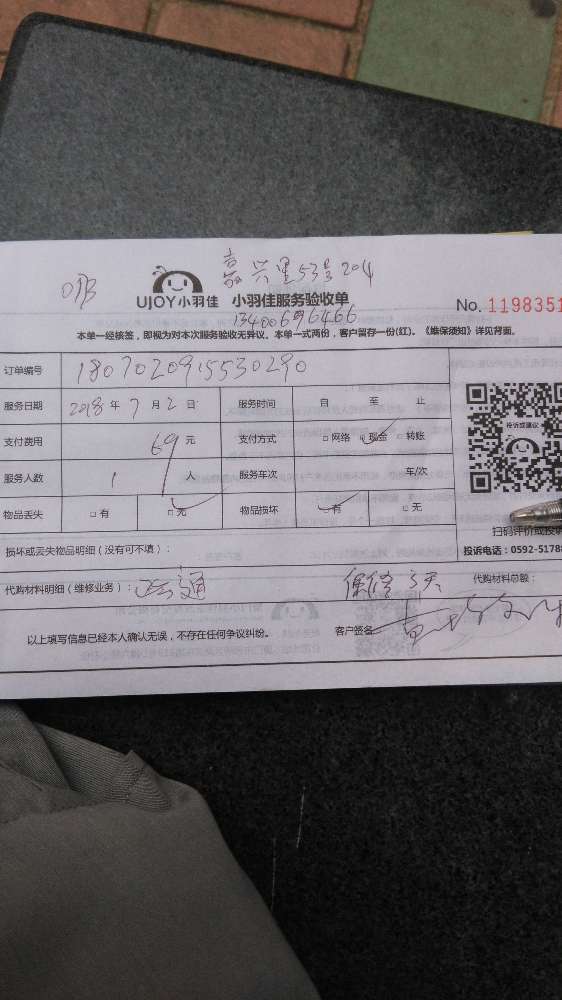 嘉兴里53号204
UJOY小羽佳 小羽佳服务验收单
No. 1198351
13400696466
本单一经核签，即视为对本次服务验收无异议。本单一式两份，客户留存一份(红)。《维保须知》详见背面。
订单编号 1807020915530290
服务日期 2018年7月2日 服务时间 自 至 止
支付费用 69元 支付方式 □网络 □现金 □转账
投诉或建议
服务人数 1人 服务车次 车/次
物品丢失 □有 □无 物品损坏 □有 □无
扫码评价或投
损坏或丢失物品明细（没有可不填）：
投诉电话：0592-5178
代购材料明细（维修业务）： 通 保修3天 代购材料总额：
以上填写信息已经本人确认无误，不存在任何争议纠纷。 客户签名